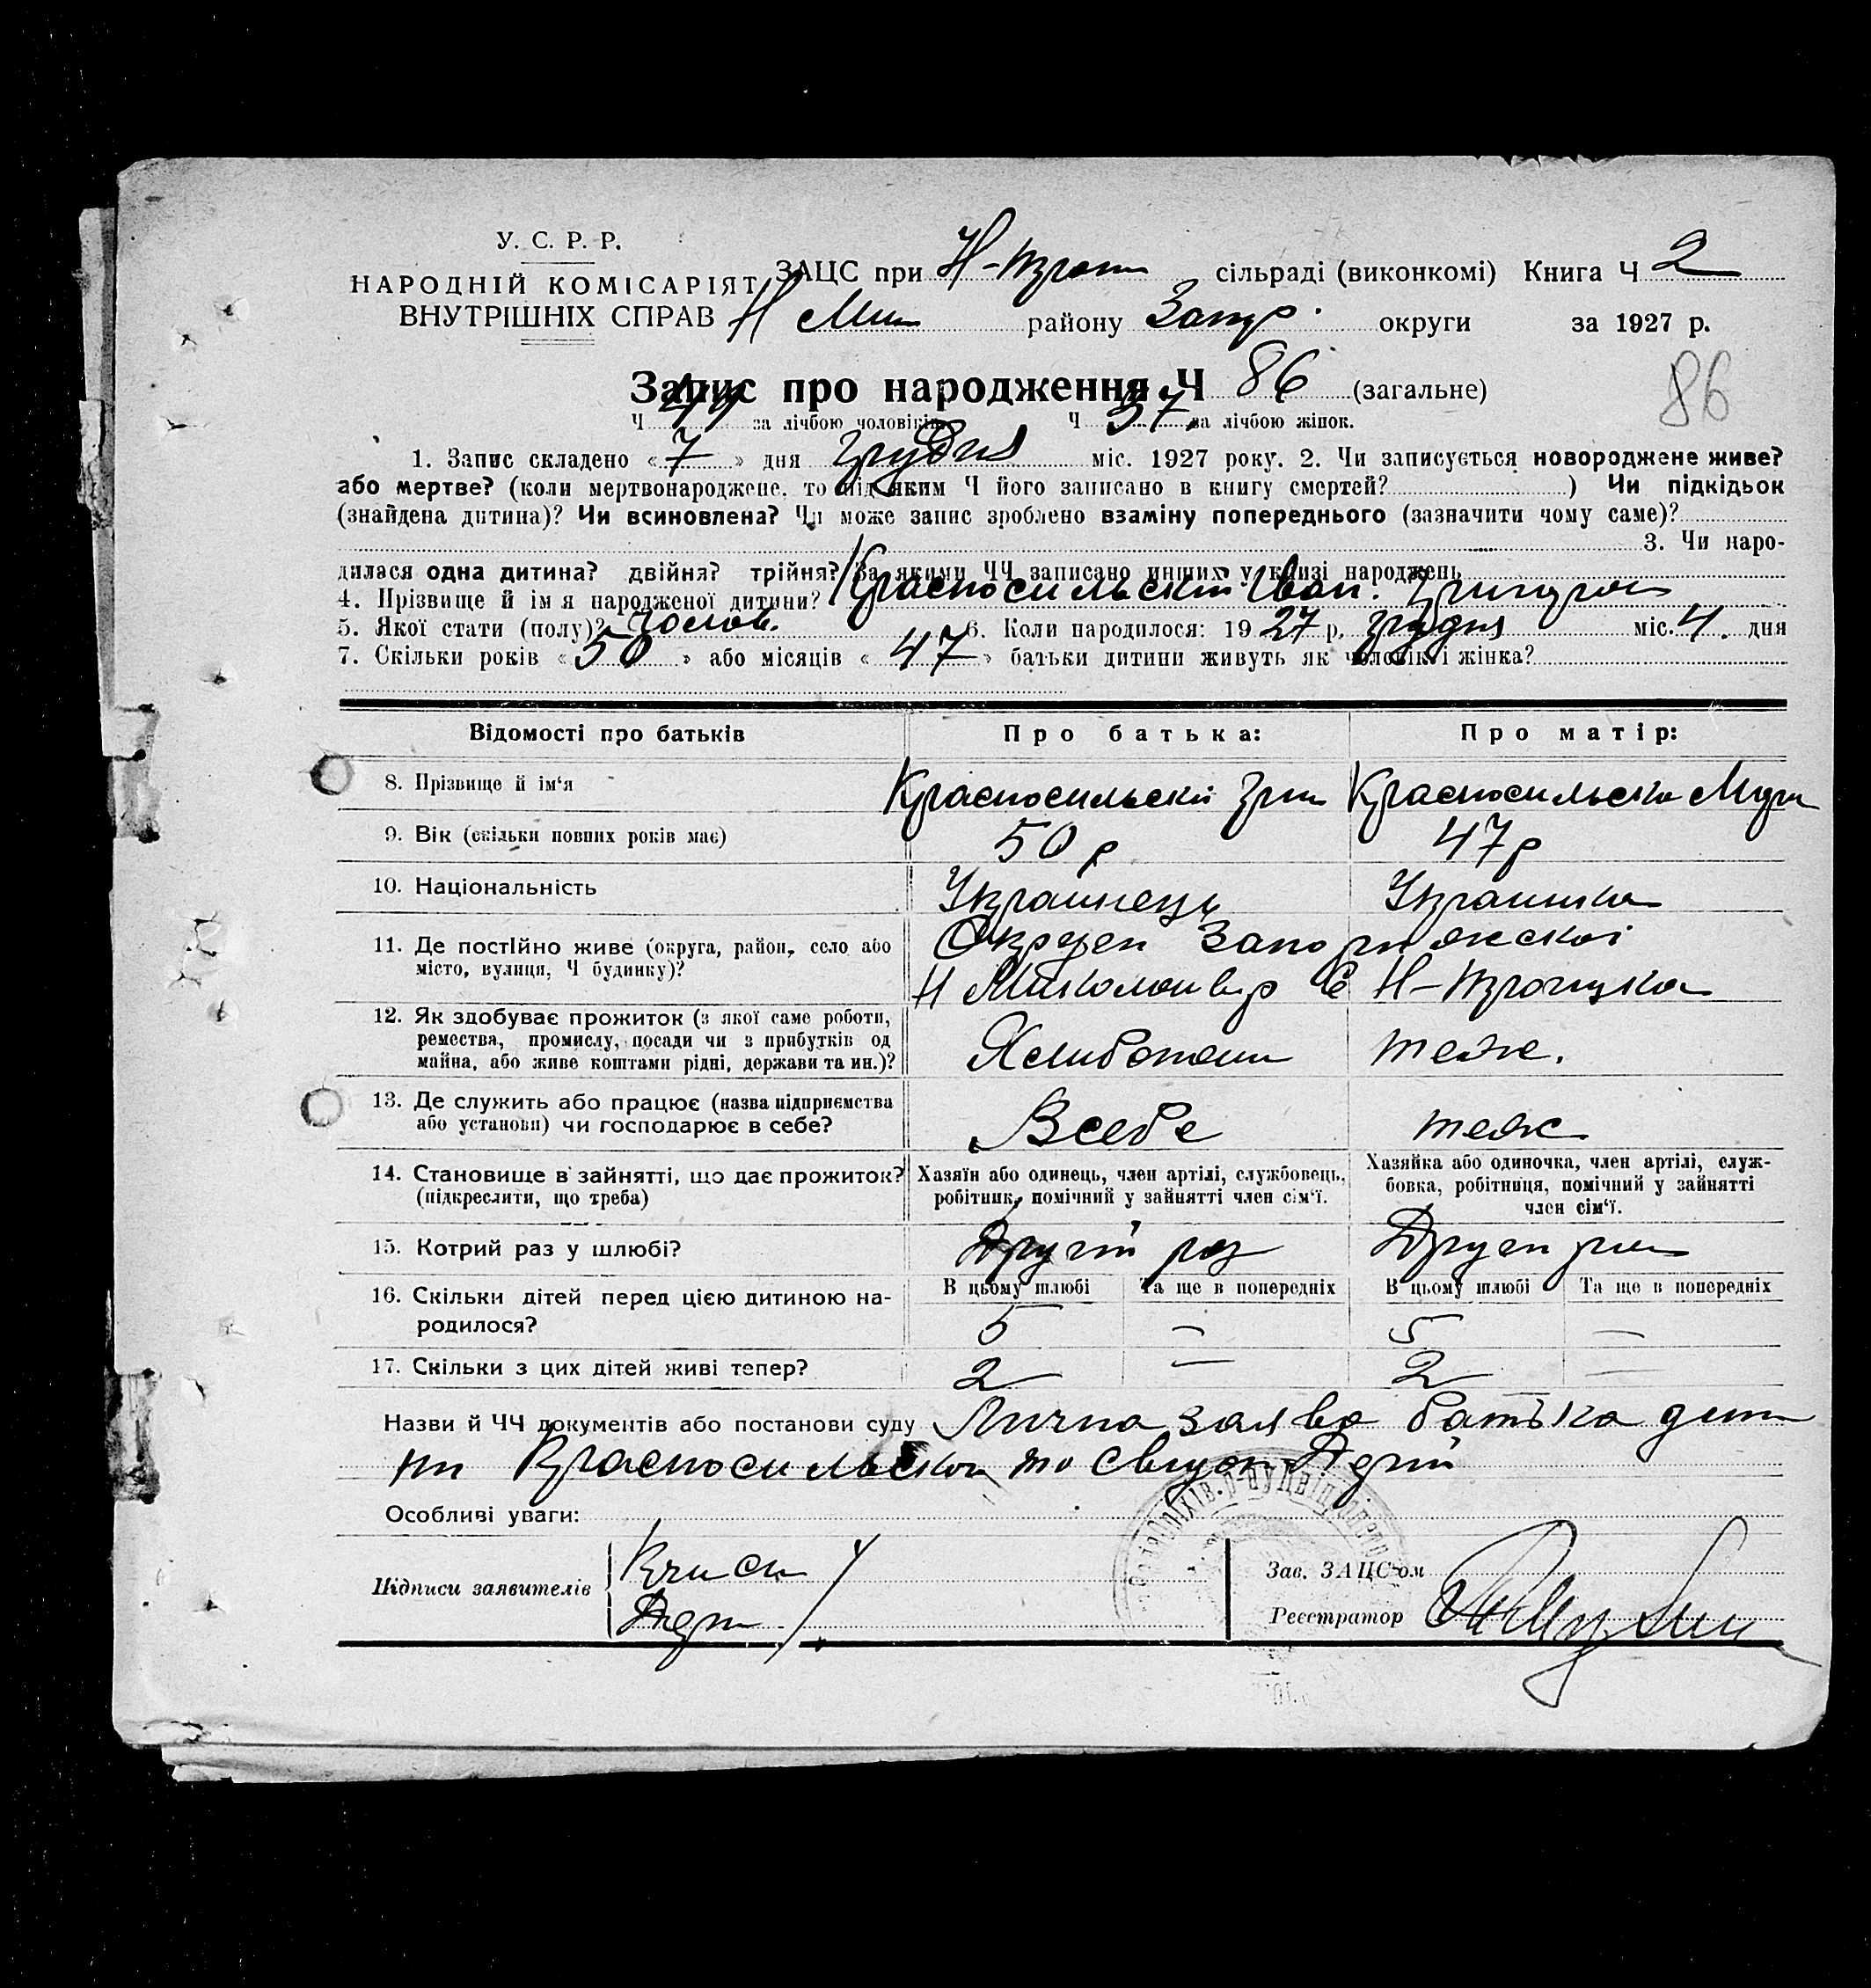 У. С. Р. Р.
НАРОДНІЙ КОМІСАРІЯТ
ВНУТРІШНІХ СПРАВ
ЗАЦС при сільраді (виконкомі) Книга Ч 2
Н району Запор. округи за 1927 р.
Запис про народження Ч 86 (загальне)
86
Ч за лічбою чоловіків Ч 37 за лічбою жінок.
1. Запис складено « 7 » дня грудня міс. 1927 року. 2. Чи записується новороджене живе?
або мертве? (коли мертвонароджене, то під яким Ч його записано в книгу смертей? ) Чи підкідьок
(знайдена дитина)? Чи всиновлена? Чи може запис зроблено взаміну попереднього (зазначити чому саме)?
3. Чи наро-
дилася одна дитина? двійня? трійня? За якими ЧЧ записано инших у книзі народжень
4. Прізвище й ім я народженої дитини? Красносильский Іван.
5. Якої стати (полу)? Чолов. 6. Коли народилося: 19 27 р. грудня міс. 4. дня
7. Скільки років « 50 » або місяців « 47 » батьки дитини живуть як чоловік і жінка?
Відомості про батьків Про батька: Про матір:
8. Прізвище й ім'я Красносильскій Красносильска
9. Вік (скільки повних років має) 50 р 47 р
10. Національність Українець Українка
11. Де постійно живе (округа, район, село або
місто, вулиця, Ч будинку)?
12. Як здобуває прожиток (з якої саме роботи,
ремества, промислу, посади чи з прибутків од
майна, або живе коштами рідні, держави та ин.)? теж.
13. Де служить або працює (назва підприємства
або установи) чи господарює в себе? Всебе теж
14. Становище в зайнятті, що дає прожиток?
(підкреслити, що треба)
Хазяїн або одинець, член артілі, службовець,
робітник, помічний у зайнятті член сім'ї.
Хазяйка або одиночка, член артілі, служ-
бовка, робітниця, помічний у зайнятті
член сім'ї.
15. Котрий раз у шлюбі? Другій раз
В цьому шлюбі Та ще в попередніх В цьому шлюбі Та ще в попередніх
16. Скільки дітей перед цією дитиною на-
родилося? 5 — 5 —
17. Скільки з цих дітей живі тепер? 2 — 2 —
Назви й ЧЧ документів або постанови суду Лична заява батька дити
ни
Особливі уваги:
Підписи заявителів
Зав. ЗАЦС'ом
Реєстратор